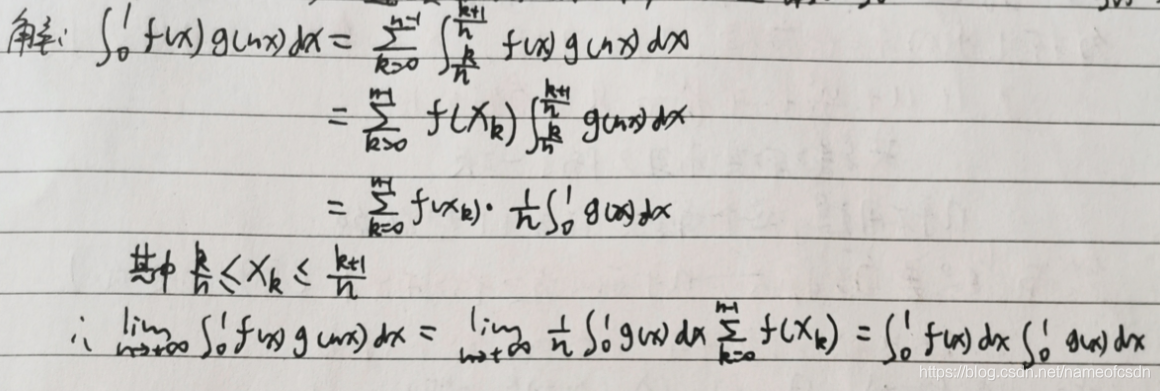 解: ∫₀¹ f(x) g(nx) dx = ∑_{k=0}^{n-1} ∫_{k/n}^{(k+1)/n} f(x) g(nx) dx
= ∑_{k=0}^{n-1} f(x_k) ∫_{k/n}^{(k+1)/n} g(nx) dx
= ∑_{k=0}^{n-1} f(x_k) · 1/n ∫₀¹ g(x) dx
其中 k/n ≤ x_k ≤ (k+1)/n
∴ lim_{n→+∞} ∫₀¹ f(x) g(nx) dx = lim_{n→+∞} 1/n ∫₀¹ g(x) dx ∑_{k=0}^{n-1} f(x_k) = ∫₀¹ f(x) dx ∫₀¹ g(x) dx
https://blog.csdn.net/nameofcsdn